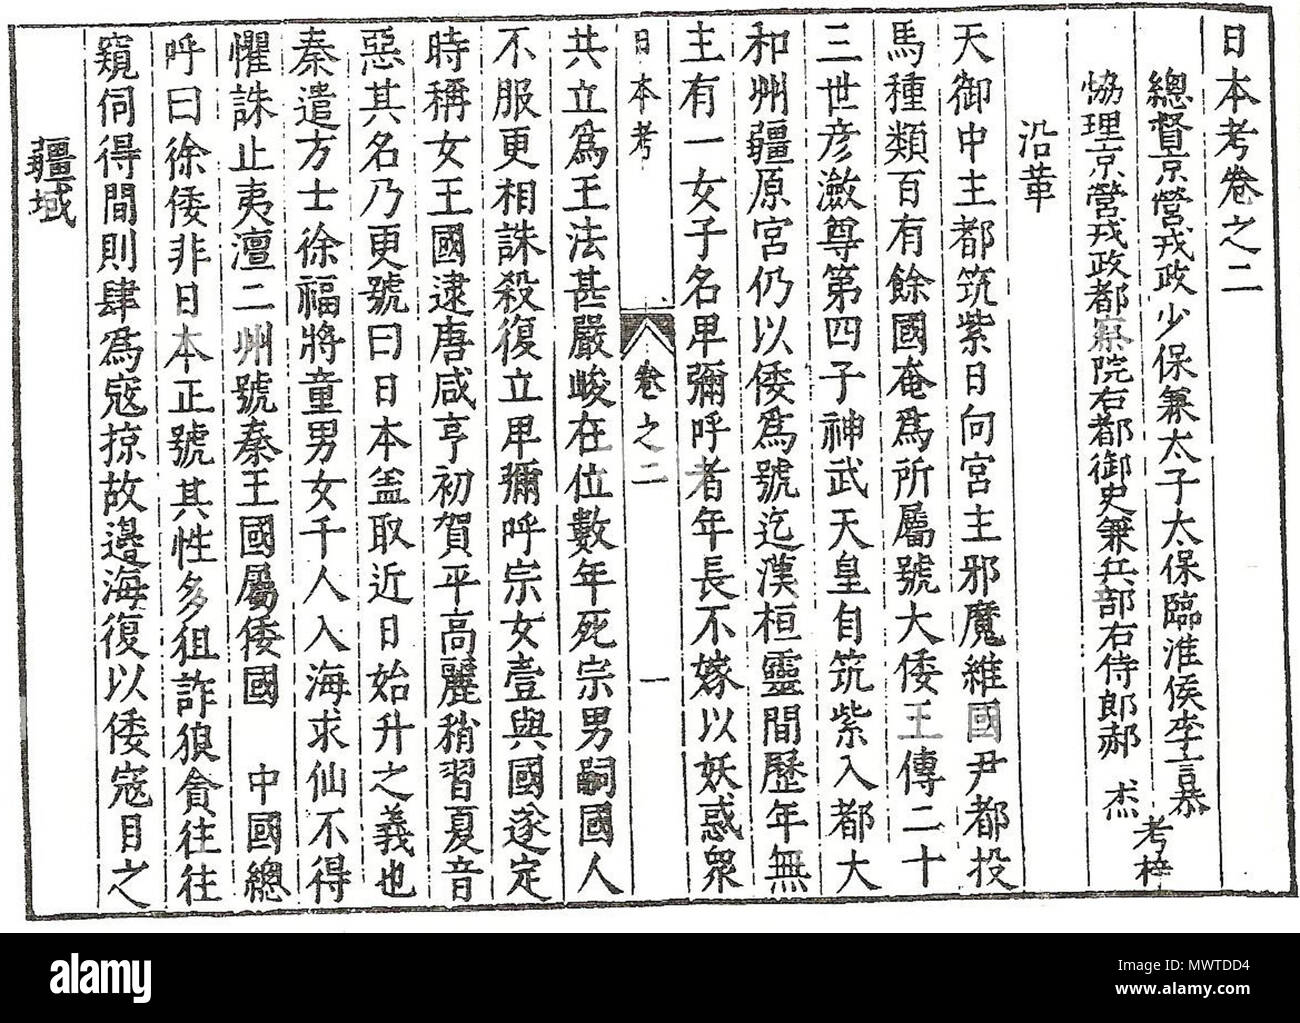 日本考卷之二
總督京營戎政少保兼太子太保臨淮侯李言恭
協理京營戎政都察院右都御史兼兵部右侍郎郝 杰
考梓
沿革
天御中主都筑紫日向宮主邪魔維國尹都投
馬種類百有餘國奄爲所屬號大倭王傳二十
三世彦瀲尊第四子神武天皇自筑紫入都大
和州疆原宮仍以倭爲號迄漢桓靈間歷年無
主有一女子名卑彌呼者年長不嫁以妖惑眾
日本考 卷之二 一
共立爲王法甚嚴峻在位數年死宗男嗣國人
不服更相誅殺復立卑彌呼宗女壹與國遂定
時稱女王國逮唐咸亨初賀平高麗稍習夏音
惡其名乃更號曰日本盖取近日始升之義也
秦遣方士徐福將童男女千人入海求仙不得
懼誅止夷澶二州號秦王國屬倭國 中國總
呼曰徐倭非日本正號其性多狙詐狼貪往往
窺伺得間則肆爲寇掠故邊海復以倭寇目之
疆域
alamy
Image ID: MWTDD4
www.alamy.com